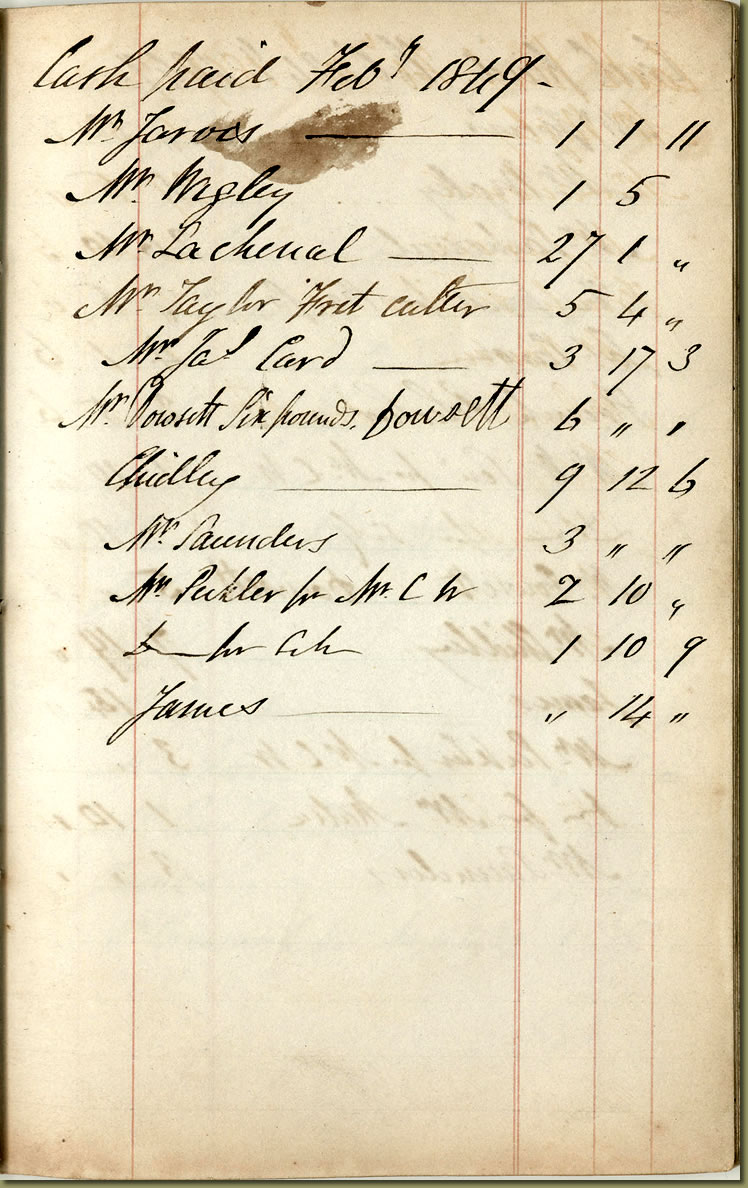 Cash paid Feby 1849 -
Mr Jarvis — 1 1 11
Mr Wigley 1 5
Mr Lachenal — 27 1 "
Mr Taylor Fret cutter 5 4 "
Mr Jas Card — 3 17 3
Mr. Dowsett Six pounds. Dowsett 6 " "
Chidley — 9 12 6
Mr Saunders 3 " "
Mr Pickler for Mr. C W 2 10 "
— for 1 10 9
James — " 14 "